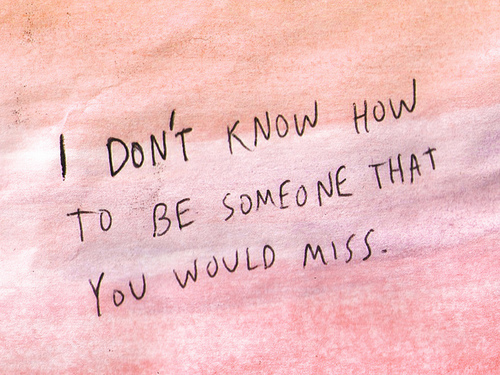 I DON'T KNOW HOW
TO BE SOMEONE THAT
YOU WOULD MISS.